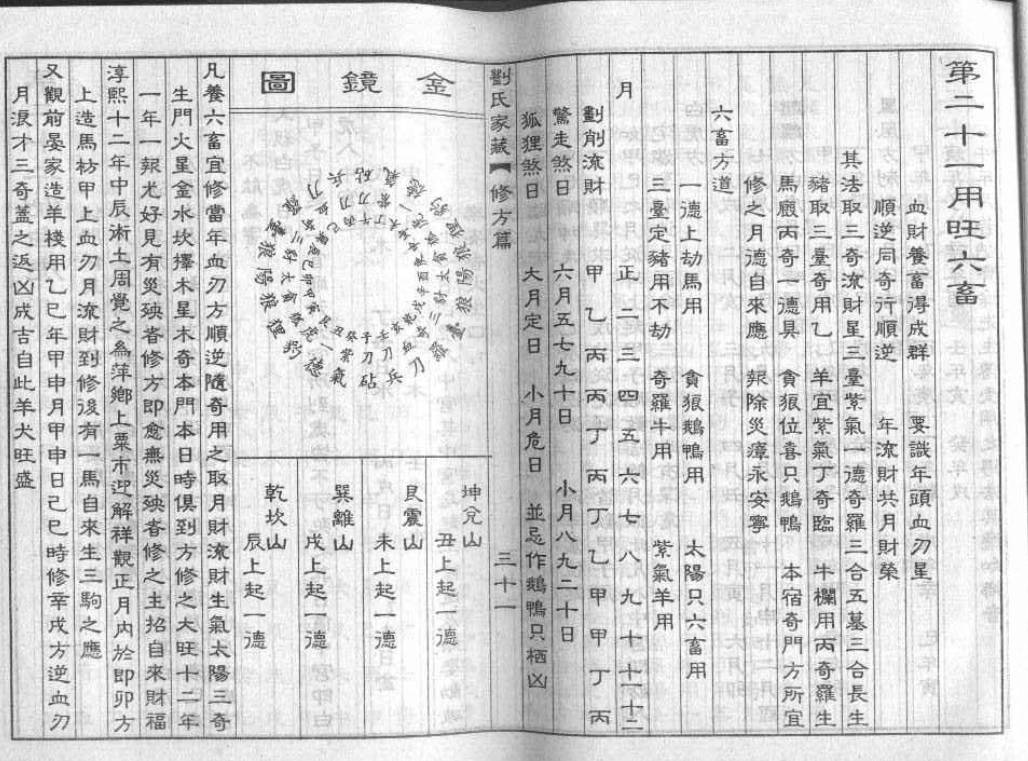 第二十一用旺六畜
血財養畜得成群　要識年頭血刃星
順逆同奇行順逆　年流財共月財榮
其法取三奇流財星三臺紫氣一德奇羅三合五墓三合長生
豬取三臺奇用乙　羊宜紫氣丁奇臨　牛欄用丙奇羅生
馬廄丙奇一德具　貪狼位喜只鵝鴨　本宿奇門方所宜
修之月德自來應　報除災瘴永安寧
六畜方道
一德上劫馬用　貪狼鵝鴨用　太陽只六畜用
三臺定豬用不劫　奇羅牛用　紫氣羊用
月　正二三四五六七八九十十一十二
劃削流財　甲乙丙丙丁丙丁乙甲甲丁丙
驚走煞日　六月五七九十日　小月八九二十日
狐狸煞日　大月定日　小月危日　並忌作鵝鴨只栖凶
劉氏家藏【修方篇　三十一
金鏡圖
坤兌山　丑上起一德
艮震山　未上起一德
巽離山　戌上起一德
乾坎山　辰上起一德
凡養六畜宜修當年血刃方順逆隨奇用之取月財流財生氣太陽三奇
生門火星金水坎擇木星木奇本門本日時俱到方修之大旺十二年
一年一報尤好見有災殃者修方即愈無災殃者修之主招自來財福
淳熙十二年中辰術士周覺之為萍鄉上栗市迎解祥觀正月內於即卯方
上造馬枋甲上血刃月流財到修後有一馬自來生三駒之應
又觀前晏家造羊棧用乙巳年甲申月甲申日己巳時修辛戌方逆血刃
月浪才三奇蓋之返凶成吉自此羊犬旺盛